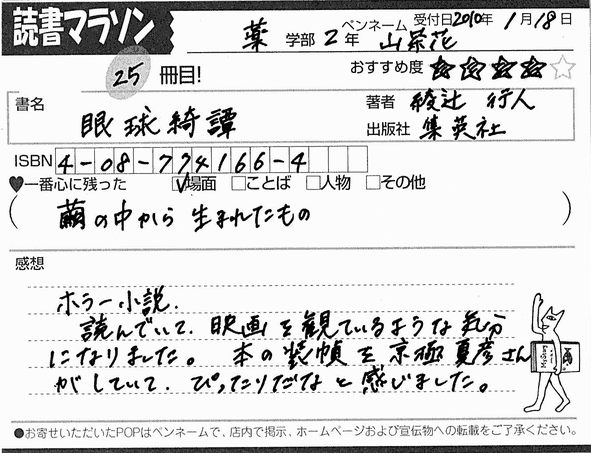 読書マラソン
薬 学部 2年 ペンネーム 山茶花 受付日2010年 1月18日
25 冊目!
おすすめ度 ★★★★☆
書名 眼球綺譚
著者 綾辻 行人
出版社 集英社
ISBN 4-08-774166-4
♥一番心に残った ☑場面 □ことば □人物 □その他
(繭の中から 生まれたもの)
感想
ホラー小説.
読んでいて、映画を観ているような気分
になりました。 本の装幀を京極夏彦さん
がしていて、ぴったりだなと感じました。
●お寄せいただいたPOPはペンネームで、店内で掲示、ホームページおよび宣伝物への転載をご了承ください。